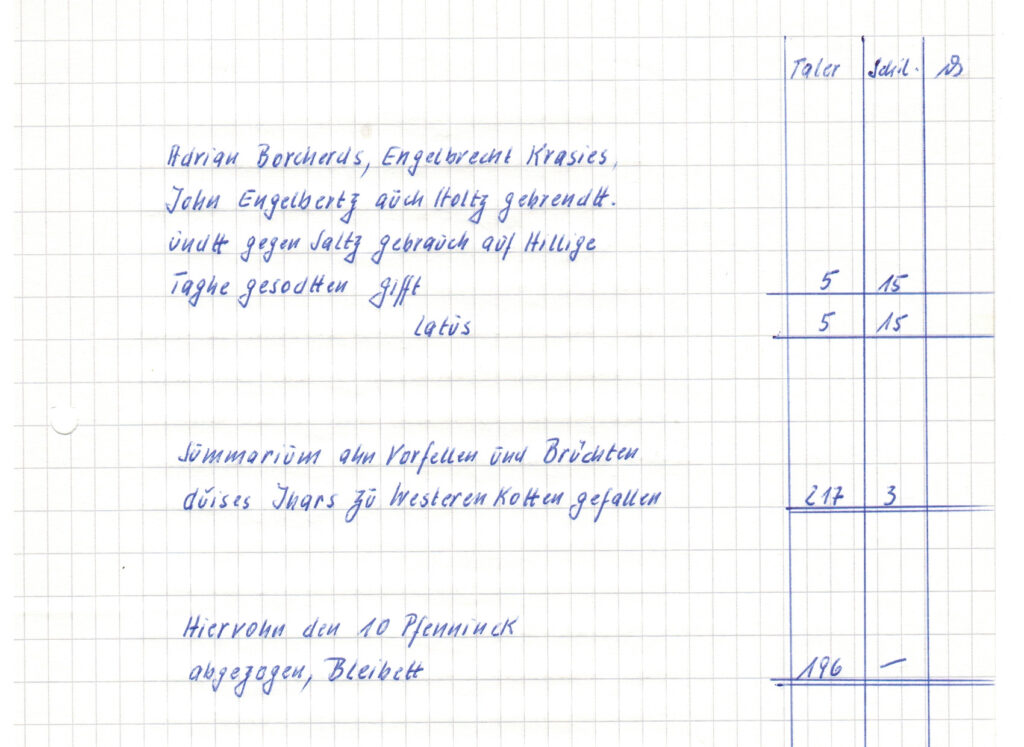 Taler Schil. ₰
Adrian Borcherds, Engelbrecht Krasies,
John Engelbertz auch Holtz gebrendtt.
undtt gegen Saltz gebrauch auf Hillige
Taghe gesodtten gifft 5 15
Latus 5 15
Summarium ahn Vorfellen und Brüchten
duises Jhars zu Westeren Kotten gefallen 217 3
Hiervohn den 10 Pfenninck
abgezogen, Bleibett 196 —